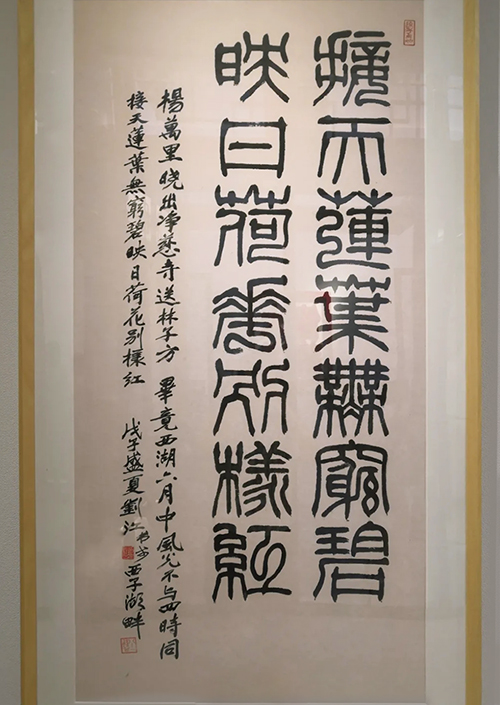 接天蓮葉無窮碧
映日荷花別樣紅
楊萬里曉出净慈寺送林子方 畢竟西湖六月中風光不与四時同
接天蓮葉無窮碧映日荷花别樣紅 戊子盛夏劉江作於西子湖畔